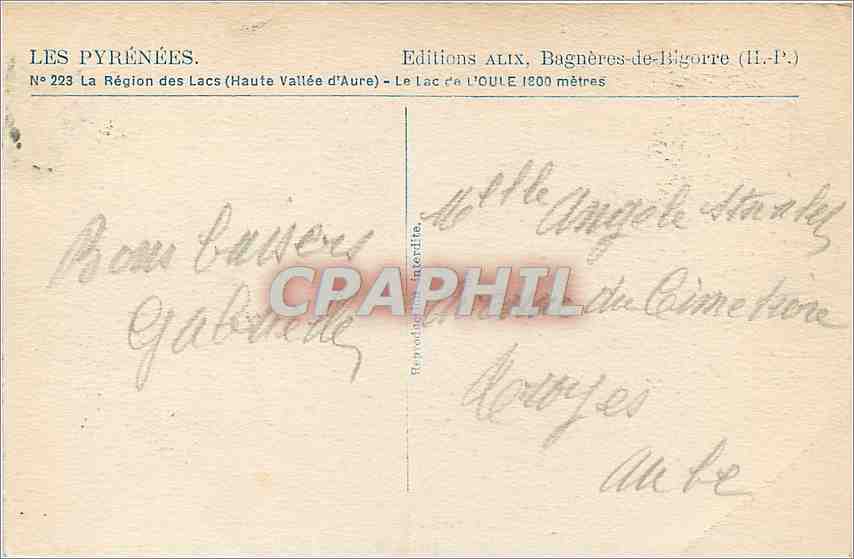 LES PYRÉNÉES.
Editions ALIX, Bagnères-de-Bigorre (H.-P.)
Nº 223 La Région des Lacs (Haute Vallée d'Aure) - Le Lac de L'OULE 1800 mètres
Bons baisers
Gabrielle
Reproduction interdite.
Melle Angèle
du Cimetière
Aube
CPARHIL